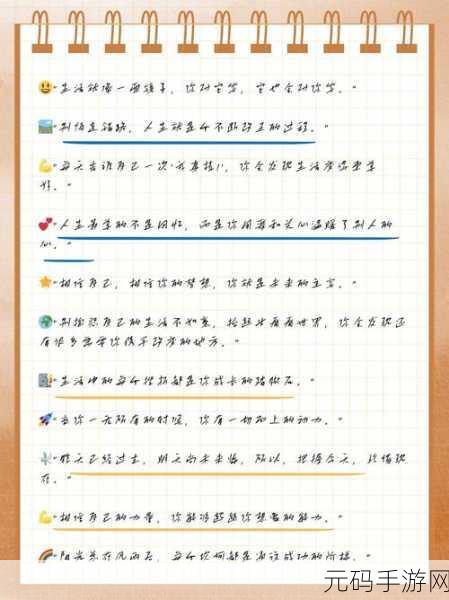 😃"生活就像一面镜子，你对它笑，它也会对你笑。"
"别怕走错路，人生就是个不断改正的过程。"
💪"每天告诉自己一次'我真棒!'，你会发现生活变得更美
好。"
💕"人生最美的不是回忆，而是你用爱和关心温暖了别人的
心。"
⭐"相信自己，相信你的梦想，你就是未来的主宰。"
🌍"别抱怨自己的生活不如意，抬起头看看世界，你会发现还
有很多需要你携手改变的地方。"
"生活中的每个挫折都是你成长的踏脚石。"
🚀"当你一无所有的时候，你有一切向上的动力。"
"昨天已经过去，明天尚未来临，所以，把握今天，珍惜现
在。"
💪"相信自己的力量，你能够超越你想象的能力。"
🌈"阳光总在风雨后，每个坎坷都是通往成功的阶梯。"
元码手游网